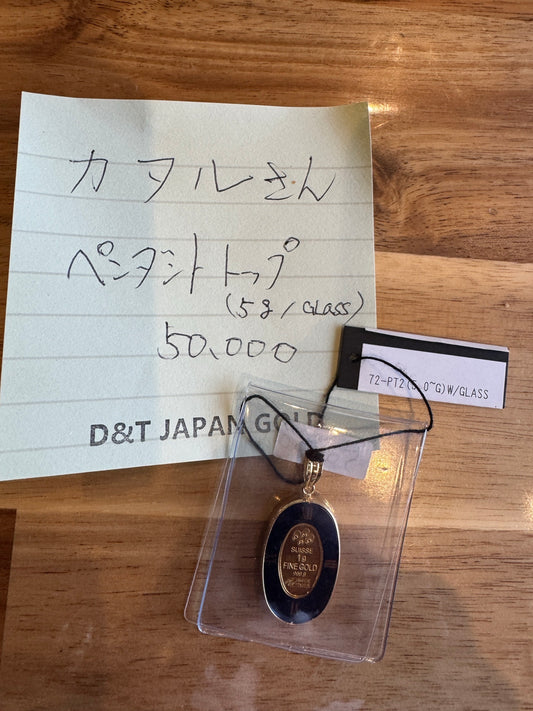 カヲルさん
ペンダントトップ
(5g/GLASS)
50.000
D&T JAPAN GOLD
72-PT2(5.0~G)W/GLASS
SUISSE
1g
FINE GOLD
999.9